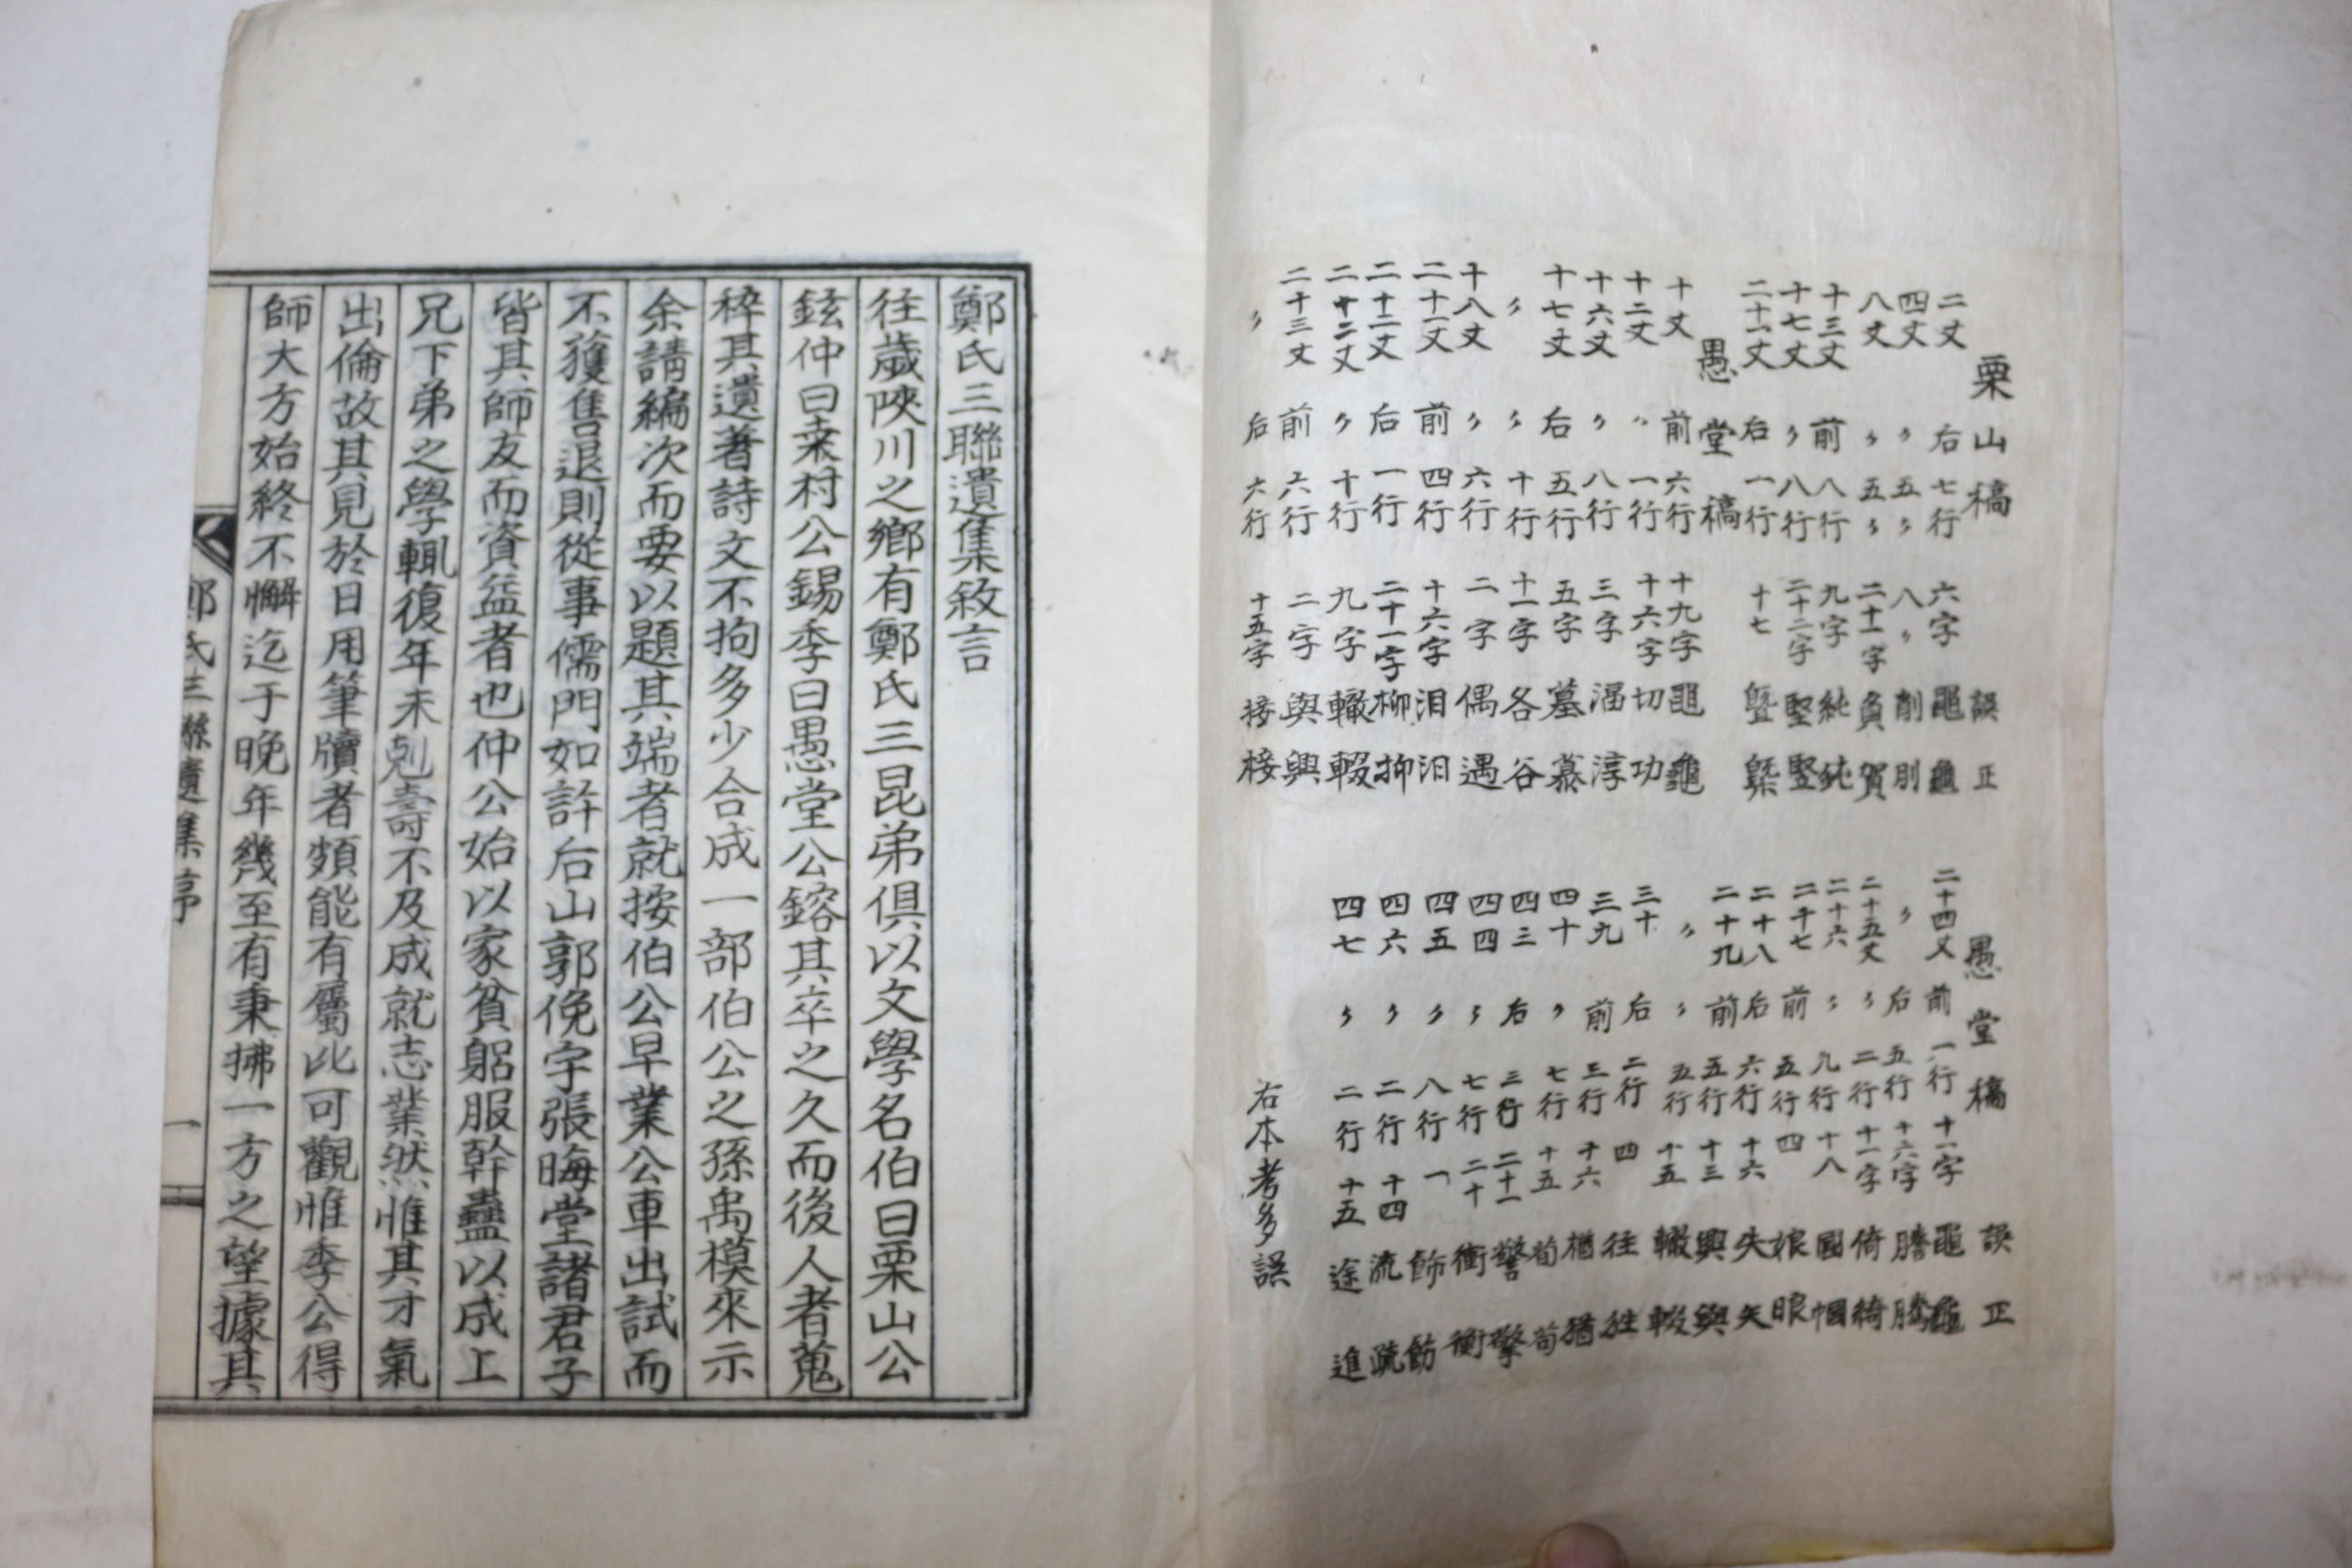 栗山稿 誤 正
二丈 后 七行 六字 黽 龜
四丈 〃 五〃 八〃 削 別
八丈 〃 五〃 二十一字 負 賀
十三丈 前 八行 九字 純 鈍
十七丈 〃 八行 二十二字 堅 竪
二十一丈 后 一行 十七 曁 槩
愚堂稿
十丈 前 六行 十九字 黽 龜
十二丈 〃 一行 十六字 切 功
十六丈 〃 八行 三字 淳
十七丈 后 五行 五字 墓 慕
〃 〃 十行 十一字 各 谷
十八丈 〃 六行 二字 偶 遇
二十一丈 前 四行 十六字 泪 汨
二十二丈 后 一行 二十一字 柳 抑
二十二丈 〃 十行 九字 轍 輟
二十三丈 前 六行 二字 與 興
〃 后 六行 十五字 接 椄
愚堂稿 誤 正
二十四丈 前 一行 十一字 黽 龜
〃 后 五行 十六字 謄 騰
二十五丈 〃 二行 十一字 倚 綺
二十六 〃 九行 十八 國 幗
二十七 前 五行 四 娘 眼
二十八 后 六行 十六 失 矢
二十九 前 五行 十三 興 與
〃 〃 五行 十五 轍 輟
三十 后 二行 四 往 性
三九 前 三行 十六 楢 猶
四十 〃 七行 十五 荀 苟
四三 后 三行 二十一 警 擎
四四 〃 七行 二十 衝 衡
四五 〃 八行 一 飾 飭
四六 〃 二行 十四 流 疏
四七 〃 二行 十五 途 進
右本考多誤
鄭氏三聯遺集敘言
往歲陜川之鄉有鄭氏三昆弟俱以文學名伯曰栗山公
鉉仲曰桒村公錫季曰愚堂公鎔其卒之久而後人者蒐
稡其遺著詩文不拘多少合成一部伯公之孫禹模來示
余請編次而要以題其端者就按伯公早業公車出試而
不獲售退則從事儒門如許后山郭俛宇張晦堂諸君子
皆其師友而資益者也仲公始以家貧躬服幹蠱以成上
兄下弟之學輒復年未剋壽不及成就志業然惟其才氣
出倫故其見於日用筆牘者頗能有屬比可觀惟季公得
師大方始終不懈迄于晚年幾至有秉拂一方之望據其
鄭氏三聯遺集序 一